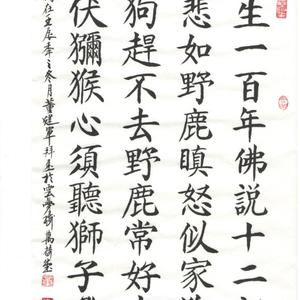 生一百年佛説十二
悲如野鹿瞋怒似家
狗趕不去野鹿常好
伏獼猴心須聽獅子
壬辰年之冬月董建軍拜書於雲夢